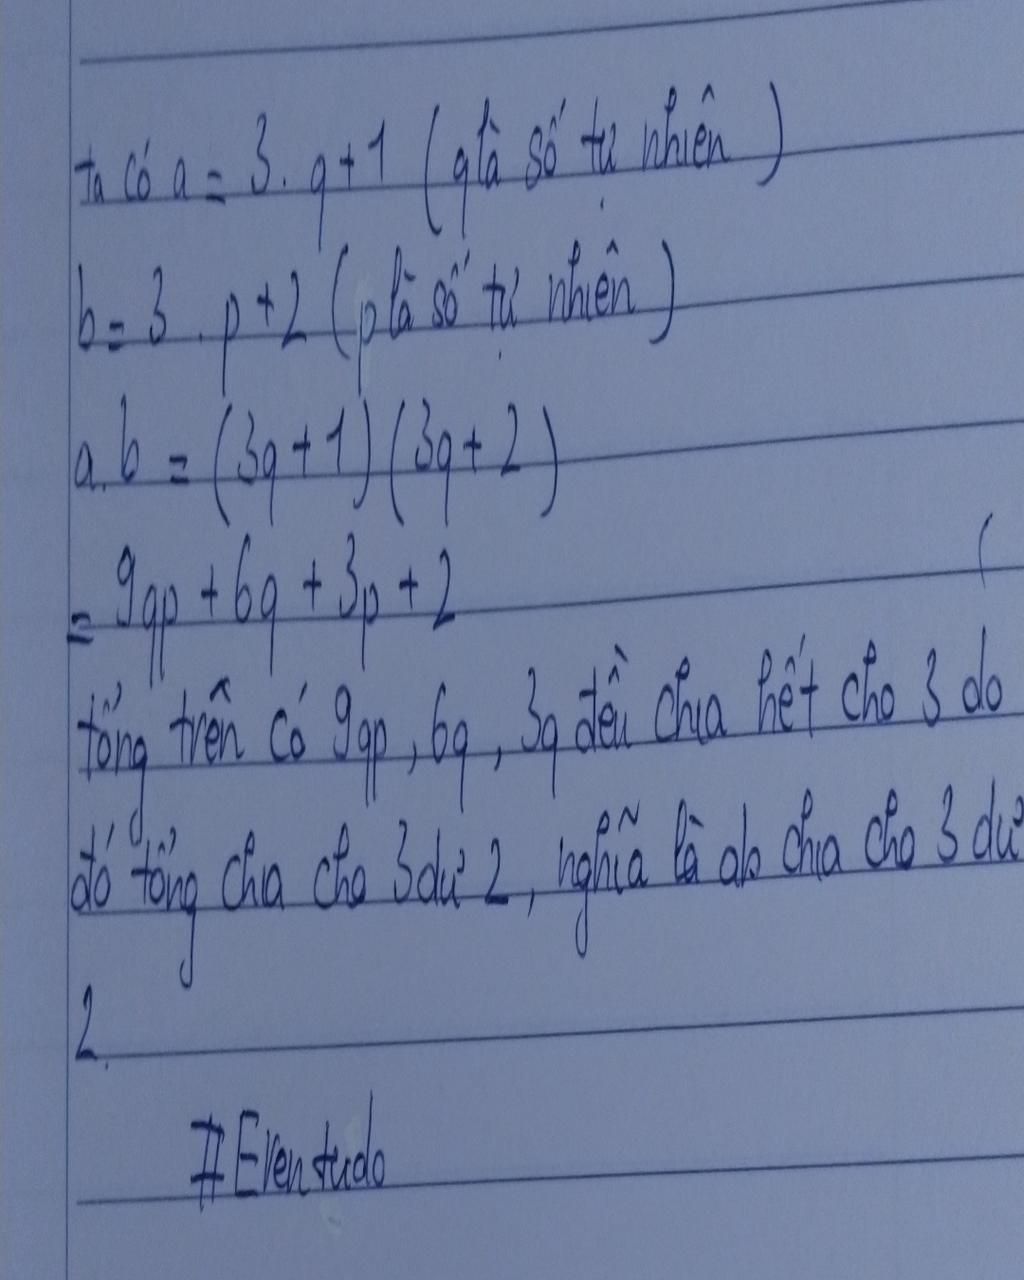 ta có a = 3. q + 1 (q là số tự nhiên)
b = 3 . p + 2 (p là số tự nhiên)
a.b = (3q + 1)(3q + 2)
= 9qp + 6q + 3p + 2 (
tổng trên có 9qp, 6q, 3q đều chia hết cho 3 do
đó tổng chia cho 3 dư 2, nghĩa là ab chia cho 3 dư
2.
#Erentudo